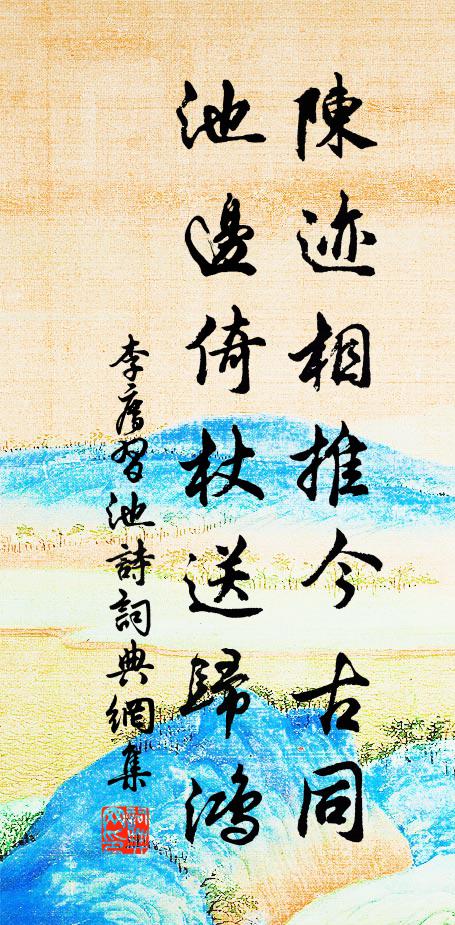 陳迹相推今古同
池邊倚杖送歸鴻
李廌習池詩詞典網集